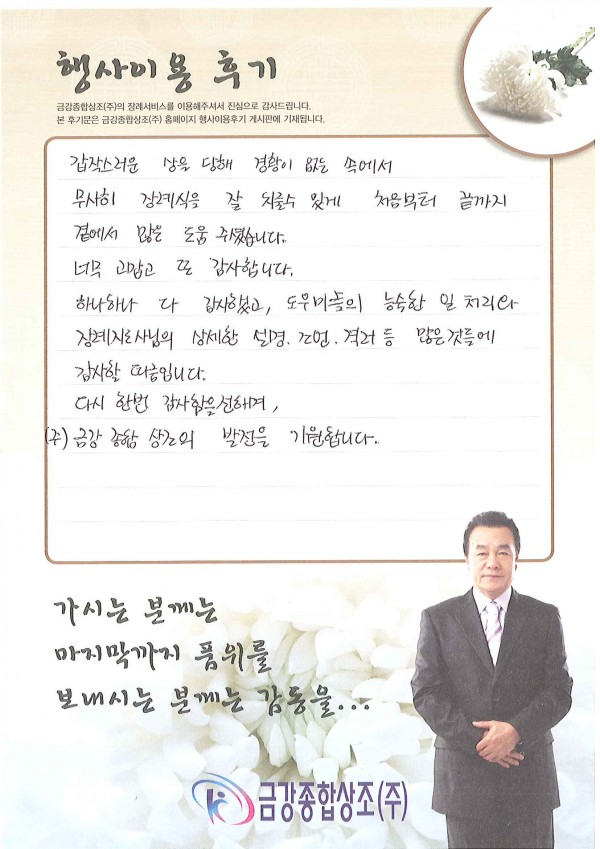 행사이용 후기
금강종합상조(주)의 장례서비스를 이용해주셔서 진심으로 감사드립니다.
본 후기문은 금강종합상조(주) 홈페이지 행사이용후기 게시판에 기재됩니다.
갑작스러운 상을 당해 경황이 없는 속에서
무사히 장례식을 잘 치를수 있게 처음부터 끝까지
곁에서 많은 도움 주셨습니다.
너무 고맙고 또 감사합니다.
하나하나 다 감사했고, 도우미분들의 능숙한 일 처리와
장례지도사님의 상세한 설명. 조언. 격려 등 많은것들에
감사할 따름입니다.
다시 한번 감사함을전하며,
(주) 금강 종합 상조의 발전을 기원합니다.
가시는 분께는
마지막까지 품위를
보내시는 분께는 감동을...
금강종합상조(주)